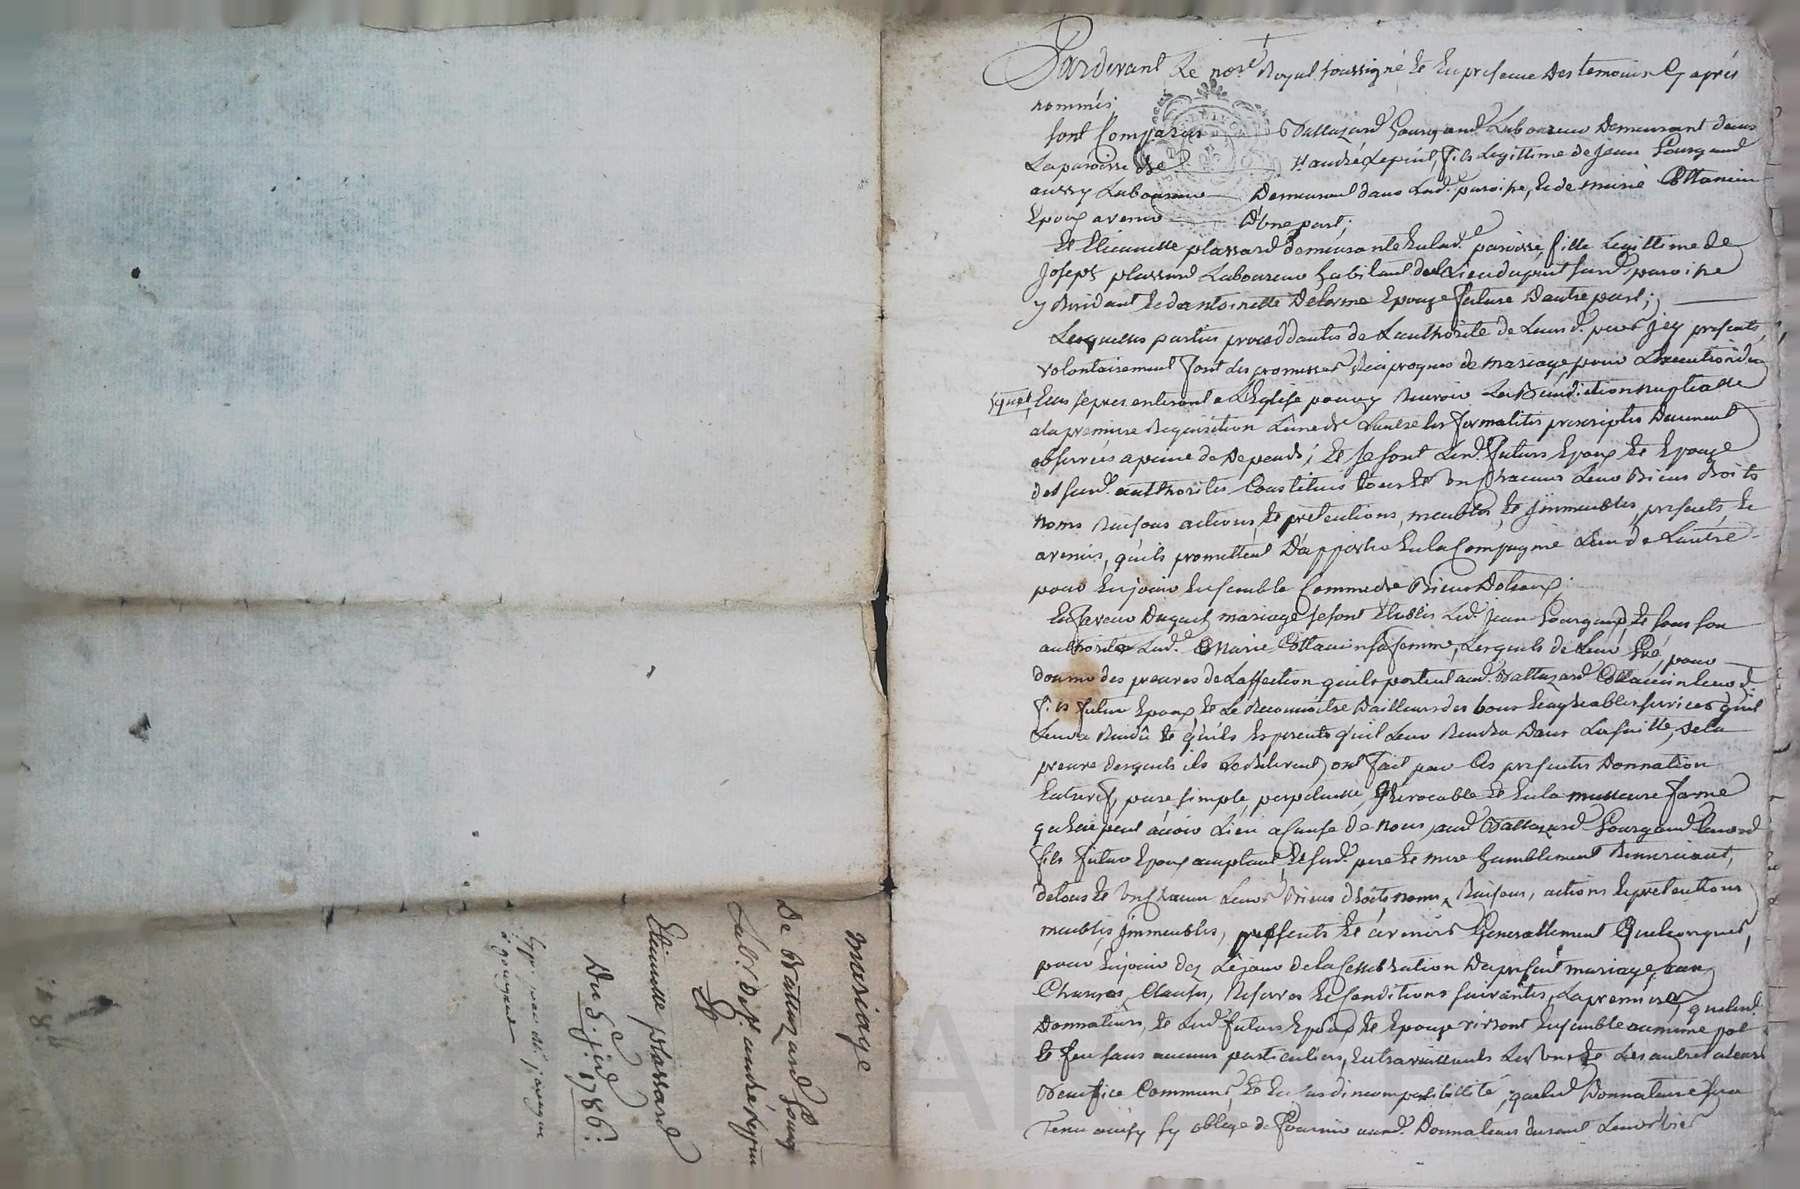 Pardevant Le no.re Royal soussigné et En presence Des temoins Cy aprés
nommés
sont Comparus Baltazard Gourgaud Laboureur Demeurant dans
La paroisse de S.t andré Lepuit, fils Legittime de Jean Gourgaud
aussy Laboureur Demeurant dans Lad. paroisse, et de marie Cottancin
Epoux avenir D'une part,
Et Etiennette plassard demeurante En lad.e paroisse, fille Legittime de
Joseph plassard Laboureur habitant paroisse
y Residant et de antoinette Delorme Epouze future D'autre part;
Lesquelles parties proceddantes de L'authorité de Leursd. peres Jcy presents,
volontairement font Les promesses Reciproques de mariage pour L'execution du
quel Elles se presenteront a L'Eglise pour y Recevoir La Benediction nuptialle
a la premiere Requisition L'une de L'autre les formalités prescriptes Deument
observées a peine de Depends; Et se sont Lesd. futurs Epoux Et Epouze
des susd. authorités Constitués tous Et un Chacuns Leurs Biens droits
noms Raisons actions, et pretentions, meubles, et Jmmeubles, presents et
avenir, qu'ils promettent D'apporter En la Compagnie L'un de L'autre
pour En jouir Ensemble Comme de Biens Dotaux;
En faveur Duquel mariage se sont Etablis Led. Jean Gourgaud, et sous son
authorité Lad.e Marie Cottancin sa femme, Lesquels de Leur Gré, pour
donner des preuves de L'affection qu'ils portent aud. Baltazard Cottancin leurd.
fils futur Epoux et Le Reconnoitre D'ailleurs des bons et agreables services qu'il
Leur a Rendû et qu'ils Esperents qu'il Leur Rendra Dans La suitte, de la
preuve desquels ils Le Relevent, ont fait par Ces presentes Donnation
Entrevif, pure simple, perpetuelle Jrrevocable et En la meilleure forme
qu'Elle peut avoir Lieu a Cause de noces, aud. Baltazard Gourgaud leurd.
fils futur Epoux acceptant, Et sesd. pere et mere humblement Remerciant,
de tous Et un Chacun Leurs Biens droits noms, Raisons, actions et pretentions
meubles Jmmeubles, presents Et avenirs Generallement Quelconques,
pour En jouir dez Le jour de la Cellebration Du present mariage, aux
Charges, Clauses, Reserves Et Conditions suivantes, La premiere, que lesd.
Donnateurs, et Lesd. futurs Epoux et Epouze vivront Ensemble au même pot
et feu sans aucuns particuliers, En travaillants Les uns Et Les autres a leurs
Benefice Commun, Et En Cas d'incompatibilité, que led. Donnataire sera
Tenu ainsy s'y oblige de fournir auxd. Donnateurs durant Leurs vies
mariage
De Baltazard Gourg.
Lab.r de S.t andré Lepuit
Et
Etiennette plassard
Du 5.e juin 1786.